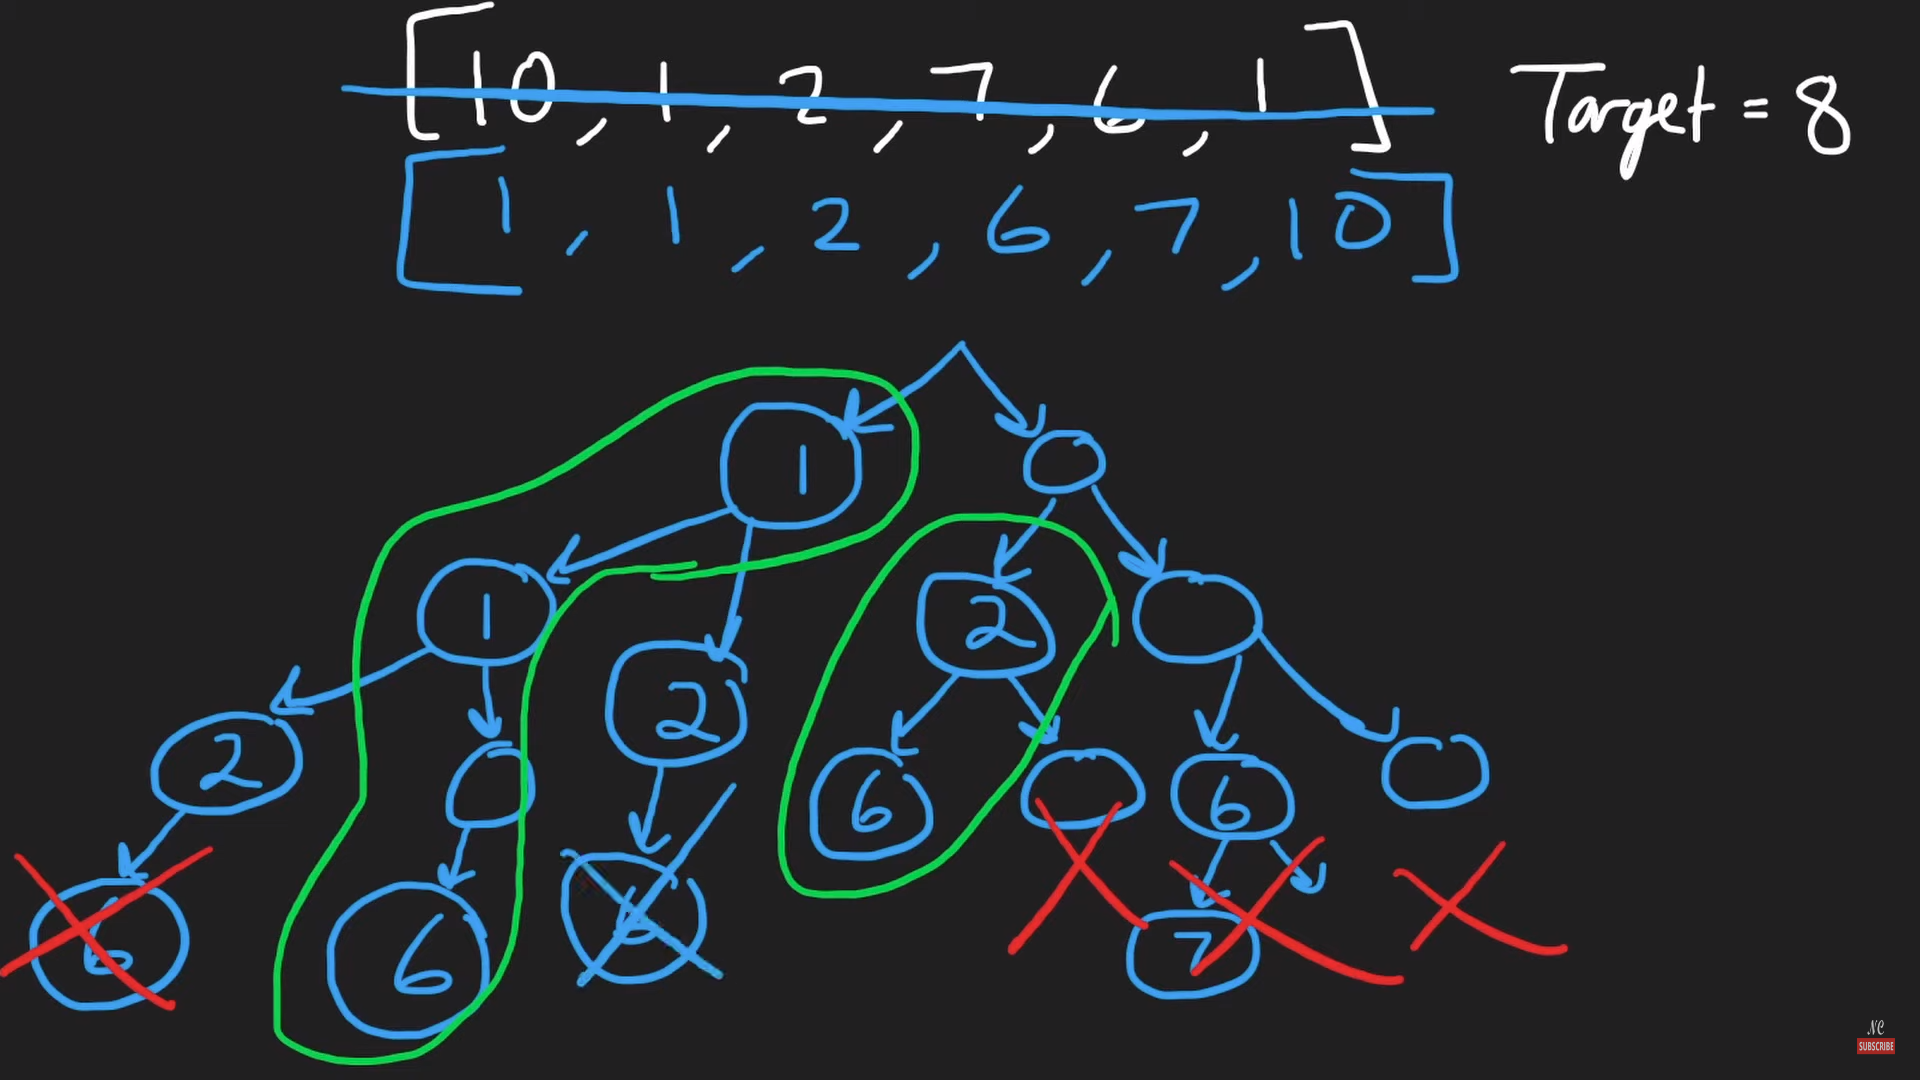 [10, 1, 2, 7, 6, 1] Target = 8
[1, 1, 2, 6, 7, 10]
1
1 2
2 2 6
6 6 6 7
NC
SUBSCRIBE